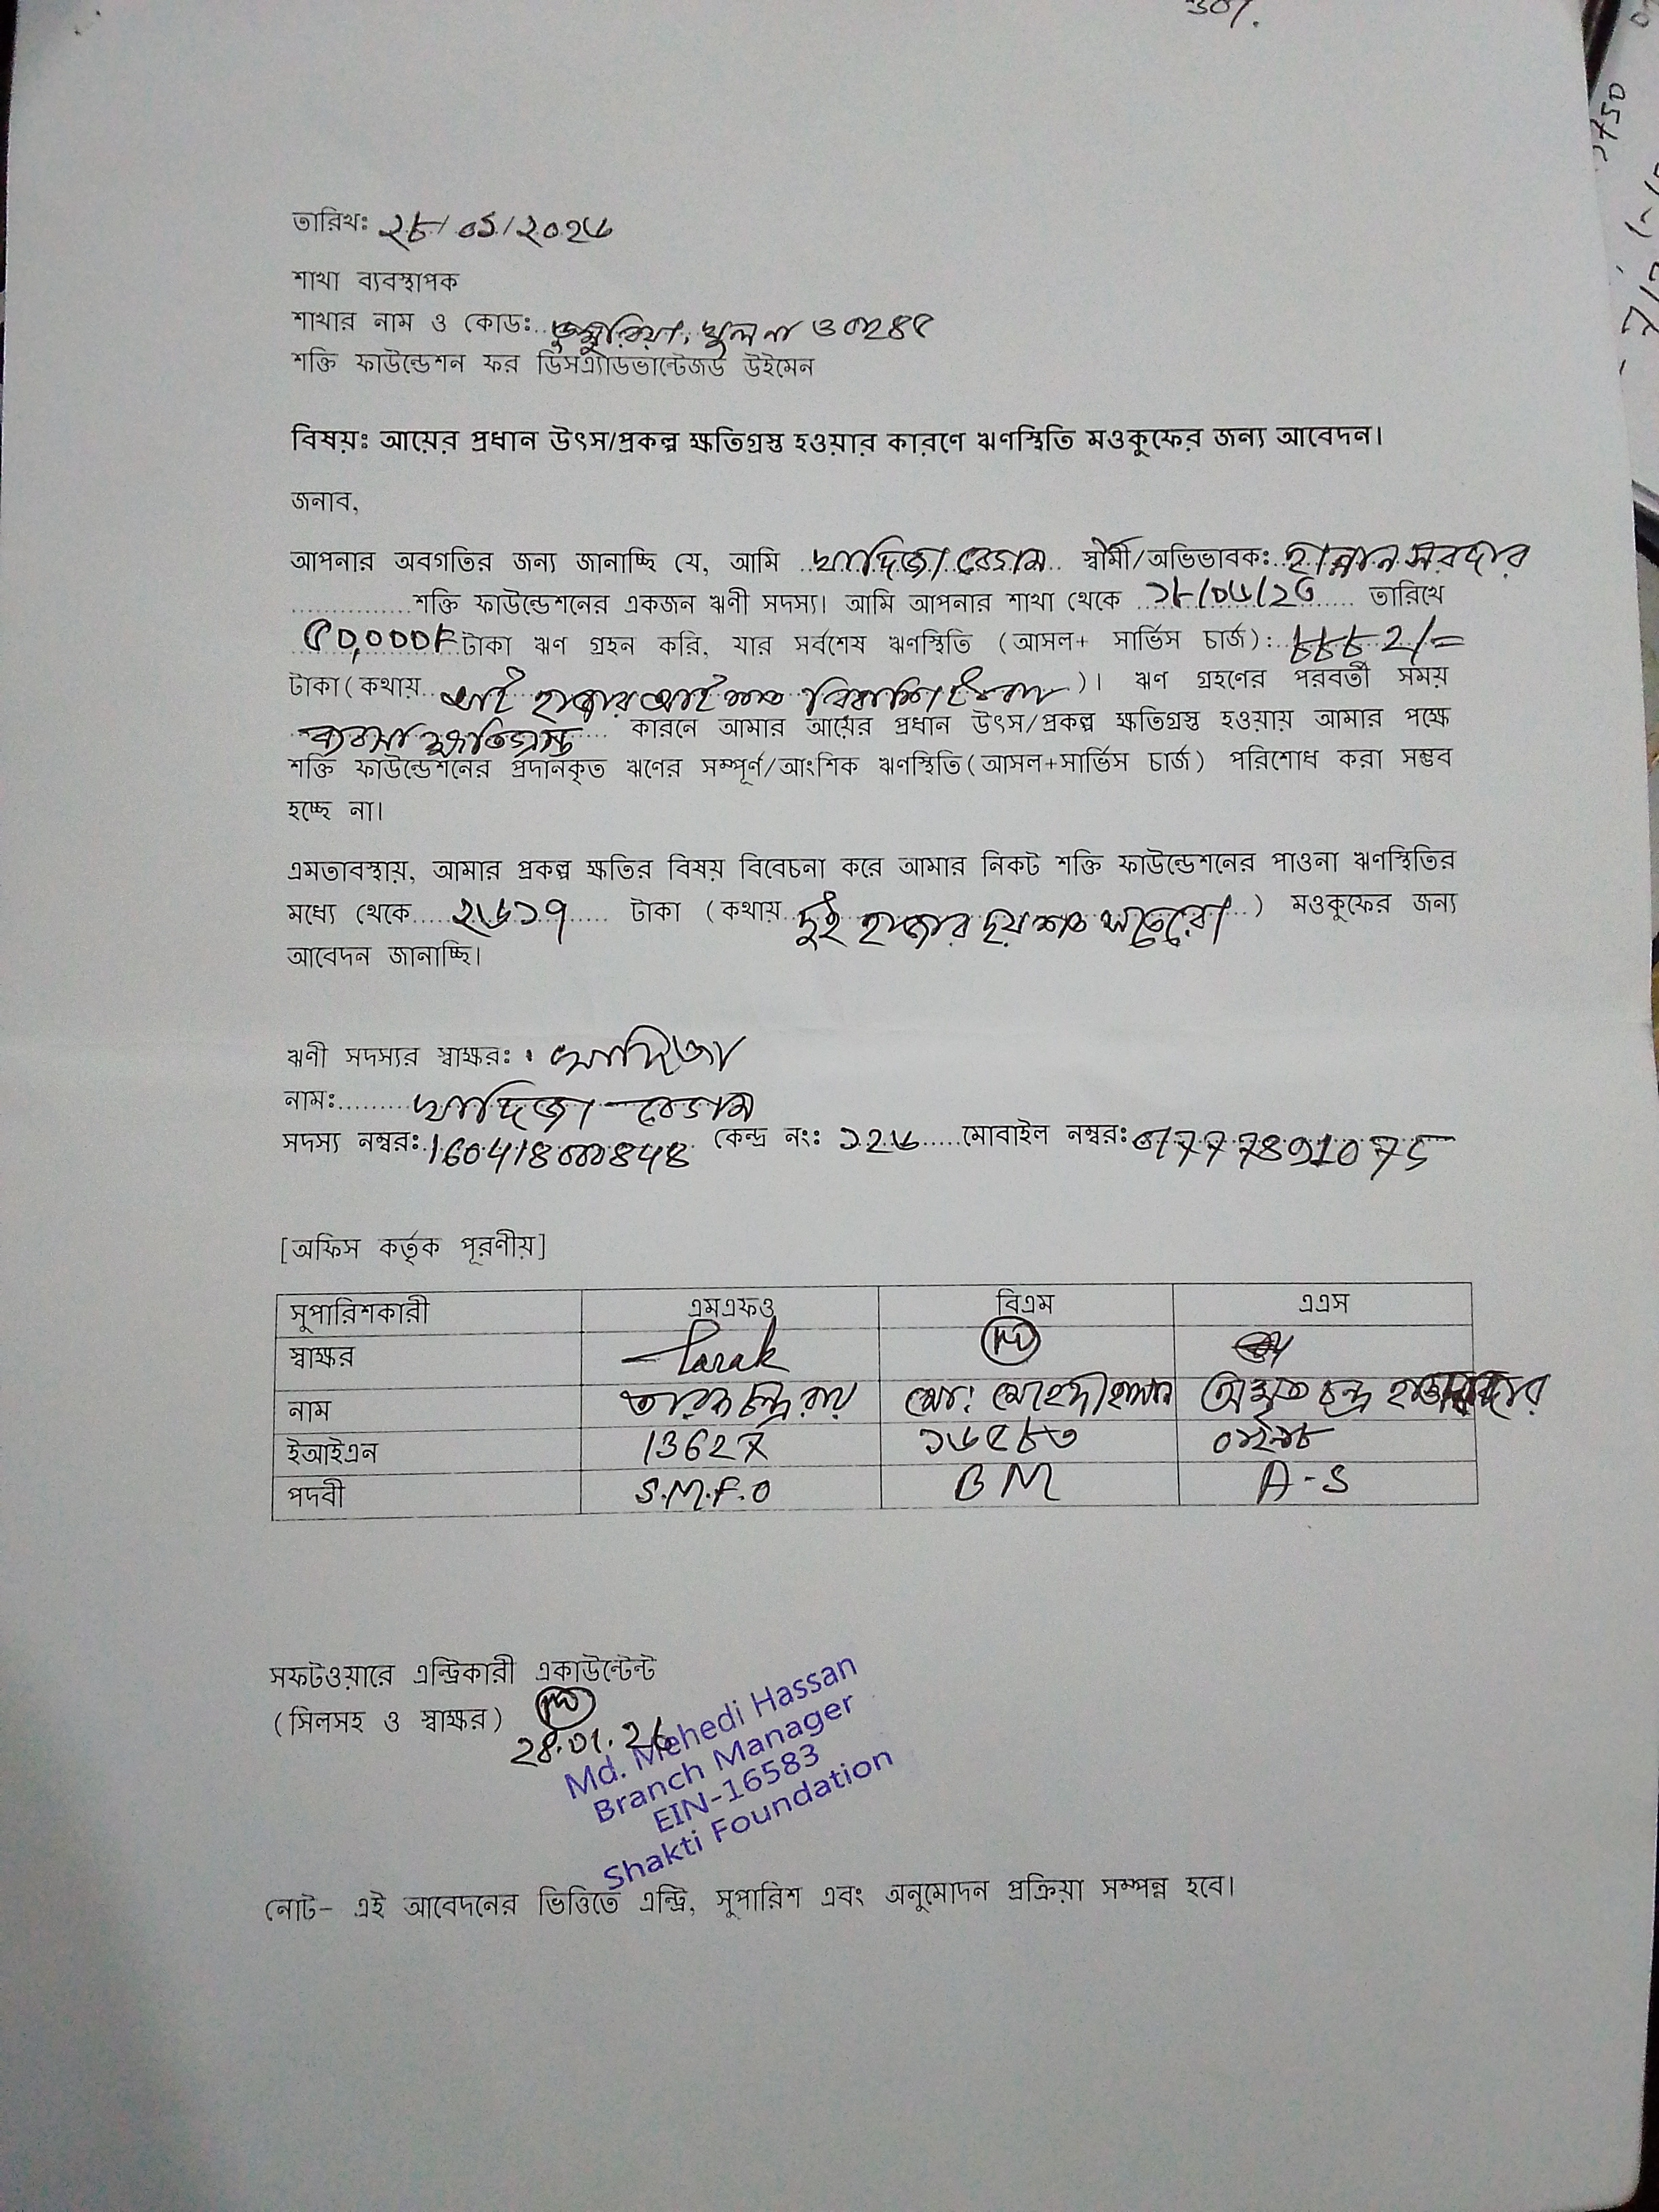 তারিখঃ ২৮/০১/২০২৬
শাখা ব্যবস্থাপক
শাখার নাম ও কোডঃ ডুমুরিয়া, খুলনা ও ০২৪৫
শক্তি ফাউন্ডেশন ফর ডিসএ্যাডভান্টেজড উইমেন
বিষয়ঃ আয়ের প্রধান উৎস/প্রকল্প ক্ষতিগ্রস্ত হওয়ার কারণে ঋণস্থিতি মওকুফের জন্য আবেদন।
জনাব,
আপনার অবগতির জন্য জানাচ্ছি যে, আমি খাদিজা বেগম স্বামী/অভিভাবকঃ হান্নান সরদার
শক্তি ফাউন্ডেশনের একজন ঋণী সদস্য। আমি আপনার শাখা থেকে তারিখে
৫০,০০০/= টাকা ঋণ গ্রহন করি, যার সর্বশেষ ঋণস্থিতি (আসল+ সার্ভিস চার্জ): ৮৮৮২/=
টাকা(কথায় আট হাজার আট শত বিরাশি টাকা)। ঋণ গ্রহণের পরবর্তী সময়
ব্যবসা ক্ষতিগ্রস্ত কারনে আমার আয়ের প্রধান উৎস/প্রকল্প ক্ষতিগ্রস্ত হওয়ায় আমার পক্ষে
শক্তি ফাউন্ডেশনের প্রদানকৃত ঋণের সম্পূর্ণ/আংশিক ঋণস্থিতি(আসল+সার্ভিস চার্জ) পরিশোধ করা সম্ভব
হচ্ছে না।
এমতাবস্থায়, আমার প্রকল্প ক্ষতির বিষয় বিবেচনা করে আমার নিকট শক্তি ফাউন্ডেশনের পাওনা ঋণস্থিতির
মধ্যে থেকে ২৬১৭ টাকা (কথায় দুই হাজার ছয় শত সতেরো) মওকুফের জন্য
আবেদন জানাচ্ছি।
ঋণী সদস্যর স্বাক্ষরঃ খাদিজা
নামঃ খাদিজা বেগম
সদস্য নম্বরঃ কেন্দ্র নংঃ ১২৬ মোবাইল নম্বরঃ 01777891075
[অফিস কর্তৃক পূরণীয়]
সুপারিশকারী এমএফও বিএম এএস
স্বাক্ষর Tarak
নাম তারক চন্দ্র রায় মোঃ মেহেদী হাসান চন্দ্র
ইআইএন 13627 ১৬৫৮৩
পদবী S.M.F.O BM A-S
সফটওয়ারে এন্ট্রিকারী একাউন্টেন্ট
(সিলসহ ও স্বাক্ষর)
28.01.26
Md. Mehedi Hassan
Branch Manager
EIN-16583
Shakti Foundation
নোট- এই আবেদনের ভিত্তিতে এন্ট্রি, সুপারিশ এবং অনুমোদন প্রক্রিয়া সম্পন্ন হবে।